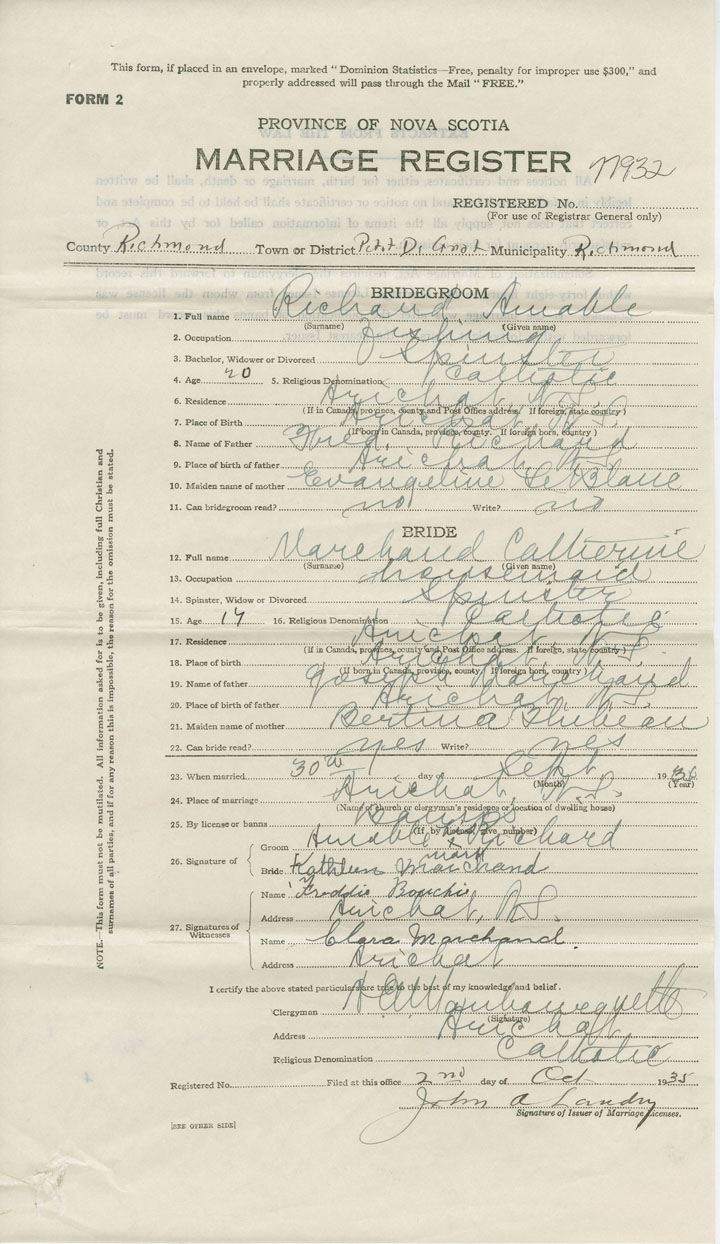 This form, if placed in an envelope, marked "Dominion Statistics—Free, penalty for improper use $300," and
properly addressed will pass through the Mail "FREE."
FORM 2
PROVINCE OF NOVA SCOTIA
MARRIAGE REGISTER
77932
REGISTERED No.
(For use of Registrar General only)
County Richmond Town or District Petit De Grat Municipality Richmond
BRIDEGROOM
1. Full name Richard Amable
(Surname) (Given name)
2. Occupation Fishing
3. Bachelor, Widower or Divorced Spinster
4. Age 20 5. Religious Denomination Catholic
6. Residence Arichat, N.S.
(If in Canada, province, county and Post Office address. If foreign, state country)
7. Place of Birth Arichat, N.S.
(If born in Canada, province, county. If foreign born, country)
8. Name of Father Fred Richard
9. Place of birth of father Arichat, N.S.
10. Maiden name of mother Evangeline LeBlanc
11. Can bridegroom read? no Write? no
BRIDE
12. Full name Marchand Catherine
(Surname) (Given name)
13. Occupation housemaid
14. Spinster, Widow or Divorced Spinster
15. Age 17 16. Religious Denomination Catholic
17. Residence Arichat, N.S.
(If in Canada, province, county and Post Office address. If foreign, state country)
18. Place of birth Arichat, N.S.
(If born in Canada, province, county. If foreign born, country)
19. Name of father Joseph Marchand
20. Place of birth of father Arichat, N.S.
21. Maiden name of mother Bertina
22. Can bride read? yes Write? yes
23. When married 30th day of Sept 1935
(Month) (Year)
24. Place of marriage Arichat, N.S.
(Name of church or clergyman's residence or location of dwelling house)
25. By license or banns Banns
(If by license, give number)
26. Signature of
Groom Amable X Richard
mark
Bride Kathleen Marchand
27. Signatures of Witnesses
Name Freddie Bouchie
Address Arichat, N.S.
Name Clara Marchand.
Address Arichat
I certify the above stated particulars are true to the best of my knowledge and belief.
Clergyman
(Signature)
Address Arichat
Religious Denomination Catholic
Registered No. Filed at this office 2nd day of Oct 1935
John A Landry
Signature of Issuer of Marriage Licenses.
[SEE OTHER SIDE]
NOTE.—This form must not be mutilated. All information asked for is to be given, including full Christian and
surnames of all parties, and if for any reason this is impossible, the reason for the omission must be stated.